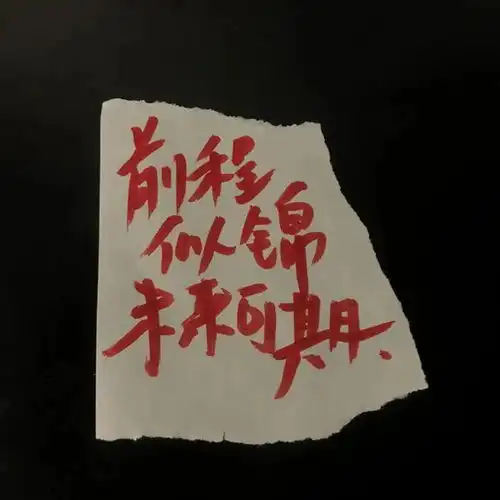 前程
似锦
未来可期、